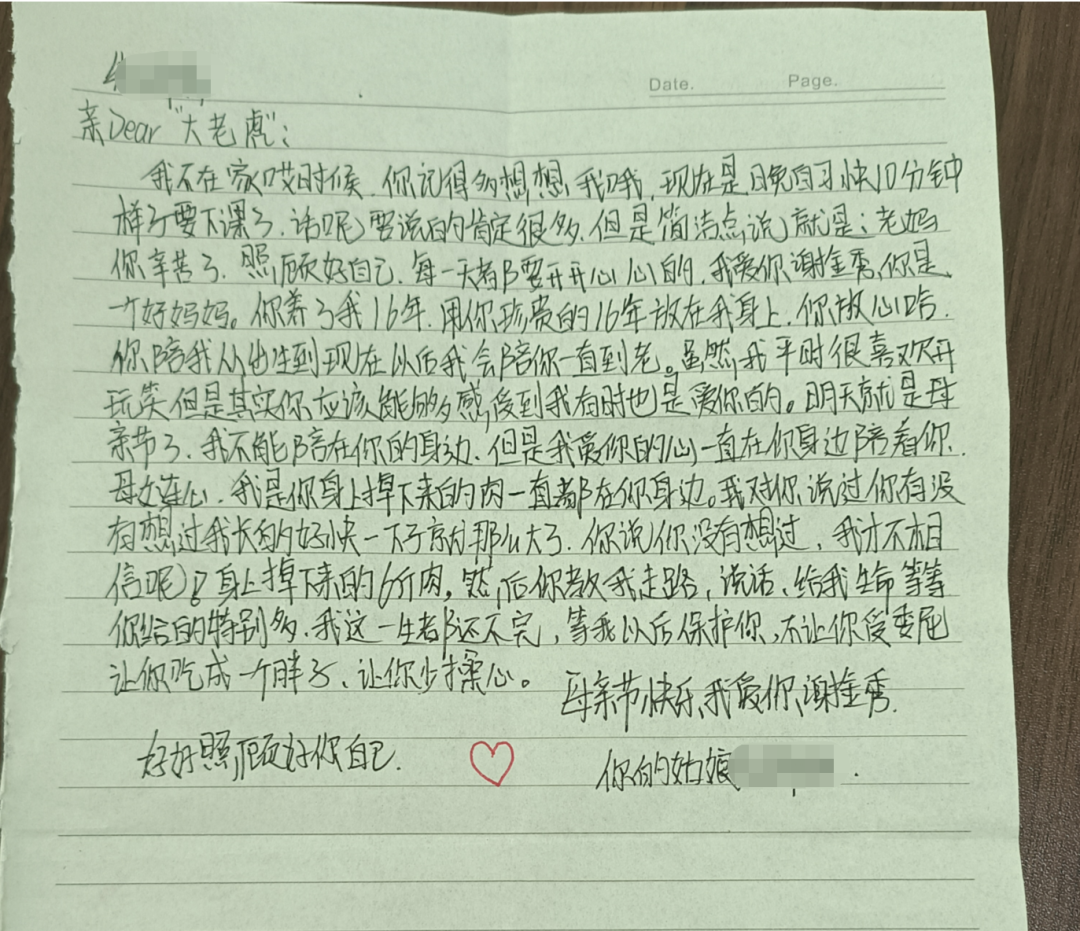 Date.    Page.
亲Dear "大老虎":
我不在家哎时候.你记得多想想我哦,现在是晚自习快10分钟
样子要下课了.话呢要说的肯定很多.但是简洁点说就是:老妈
你辛苦了.照顾好自己.每一天都要开开心心的.我爱你谢金秀,你是
一个好妈妈。你养了我16年.用你珍贵的16年放在我身上.你放心哈.
你陪我从出生到现在以后我会陪你一直到老。虽然我平时很喜欢开
玩笑但是其实你应该能够感受到我有时也是爱你的。明天就是母
亲节了.我不能陪在你的身边.但是我爱你的心一直在你身边陪着你.
母女连心.我是你身上掉下来的肉一直都在你身边。我对你说过你有没
有想过我长的好快一下子就那么大了.你说你没有想过,我才不相
信呢!身上掉下来的6斤肉,然后你教我走路,说话,给我生命等等
你给的特别多.我这一生都还不完,等我以后保护你,不让你受委屈
让你吃成一个胖子、让你少操心。
母亲节快乐,我爱你,谢金秀.
好好照顾好你自己.
你的姑娘